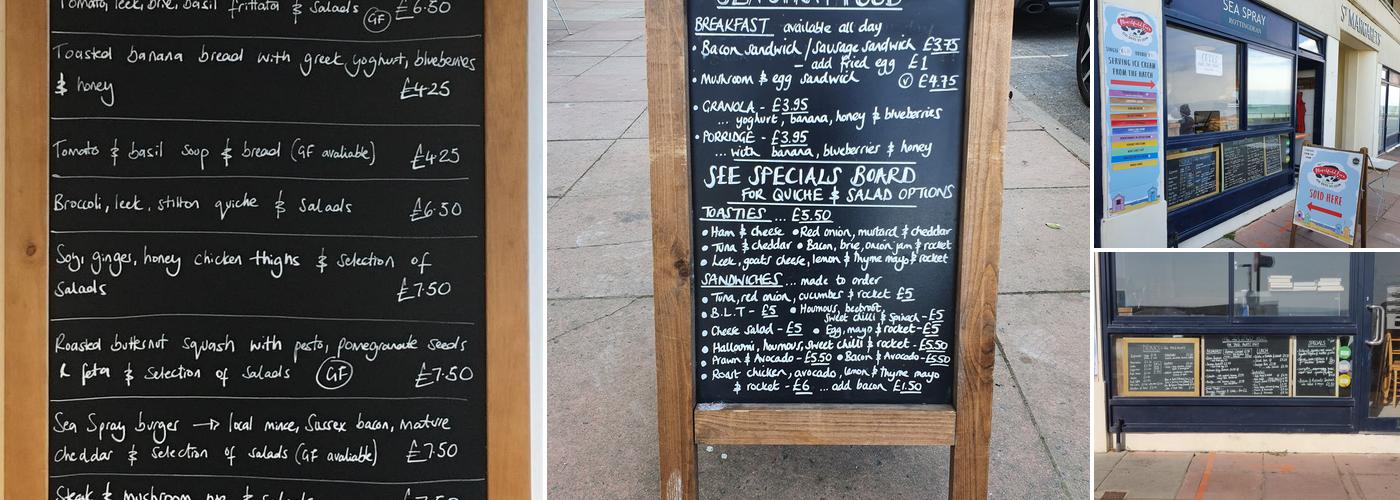 Tomato, leek, brie, basil frittata & Salads GF £6.50
Toasted banana bread with greek yoghurt, blueberries
& honey £4.25
Tomato & basil soup & bread (GF avaliable) £4.25
Broccoli, leek, stilton quiche & Salads £6.50
Soy, ginger, honey chicken thighs & selection of
Salads £7.50
Roasted butternut squash with pesto, pomegranate seeds
& feta & Selection of Salads GF £7.50
Sea Spray burger → local mince, Sussex bacon, Mature
cheddar & Selection of salads (GF avaliable) £7.50
Steak & mushroom
SEA SPRAY FOOD
BREAKFAST available all day
• Bacon sandwich / Sausage sandwich £3.75
– add fried egg £1
• Mushroom & egg sandwich V £4.75
• GRANOLA - £3.95
... yoghurt, banana, honey & blueberries
• PORRIDGE - £3.95
... with banana, blueberries & honey
SEE SPECIALS BOARD
FOR QUICHE & SALAD OPTIONS
TOASTIES ... £5.50
• Ham & cheese • Red onion, mustard & cheddar
• Tuna & cheddar • Bacon, brie, onion jam & rocket
• Leek, goats cheese, lemon & thyme mayo & rocket
SANDWICHES ... made to order
• Tuna, red onion, cucumber & rocket £5
• B.L.T - £5 • Houmous, beetroot,
Sweet chilli & Spinach - £5
• Cheese salad - £5 • Egg, mayo & rocket - £5
• Halloumi, houmous, sweet chilli & rocket - £5.50
• Prawn & Avocado - £5.50 • Bacon & Avocado - £5.50
• Roast chicken, avocado, lemon & thyme mayo
& rocket - £6 ... add bacon £1.50
SEA SPRAY
ROTTINGDEAN
ST MARGARETS
SERVING ICE CREAM
FROM THE HATCH
SOLD HERE
DRINKS
BREAKFAST
LUNCH
SPECIALS